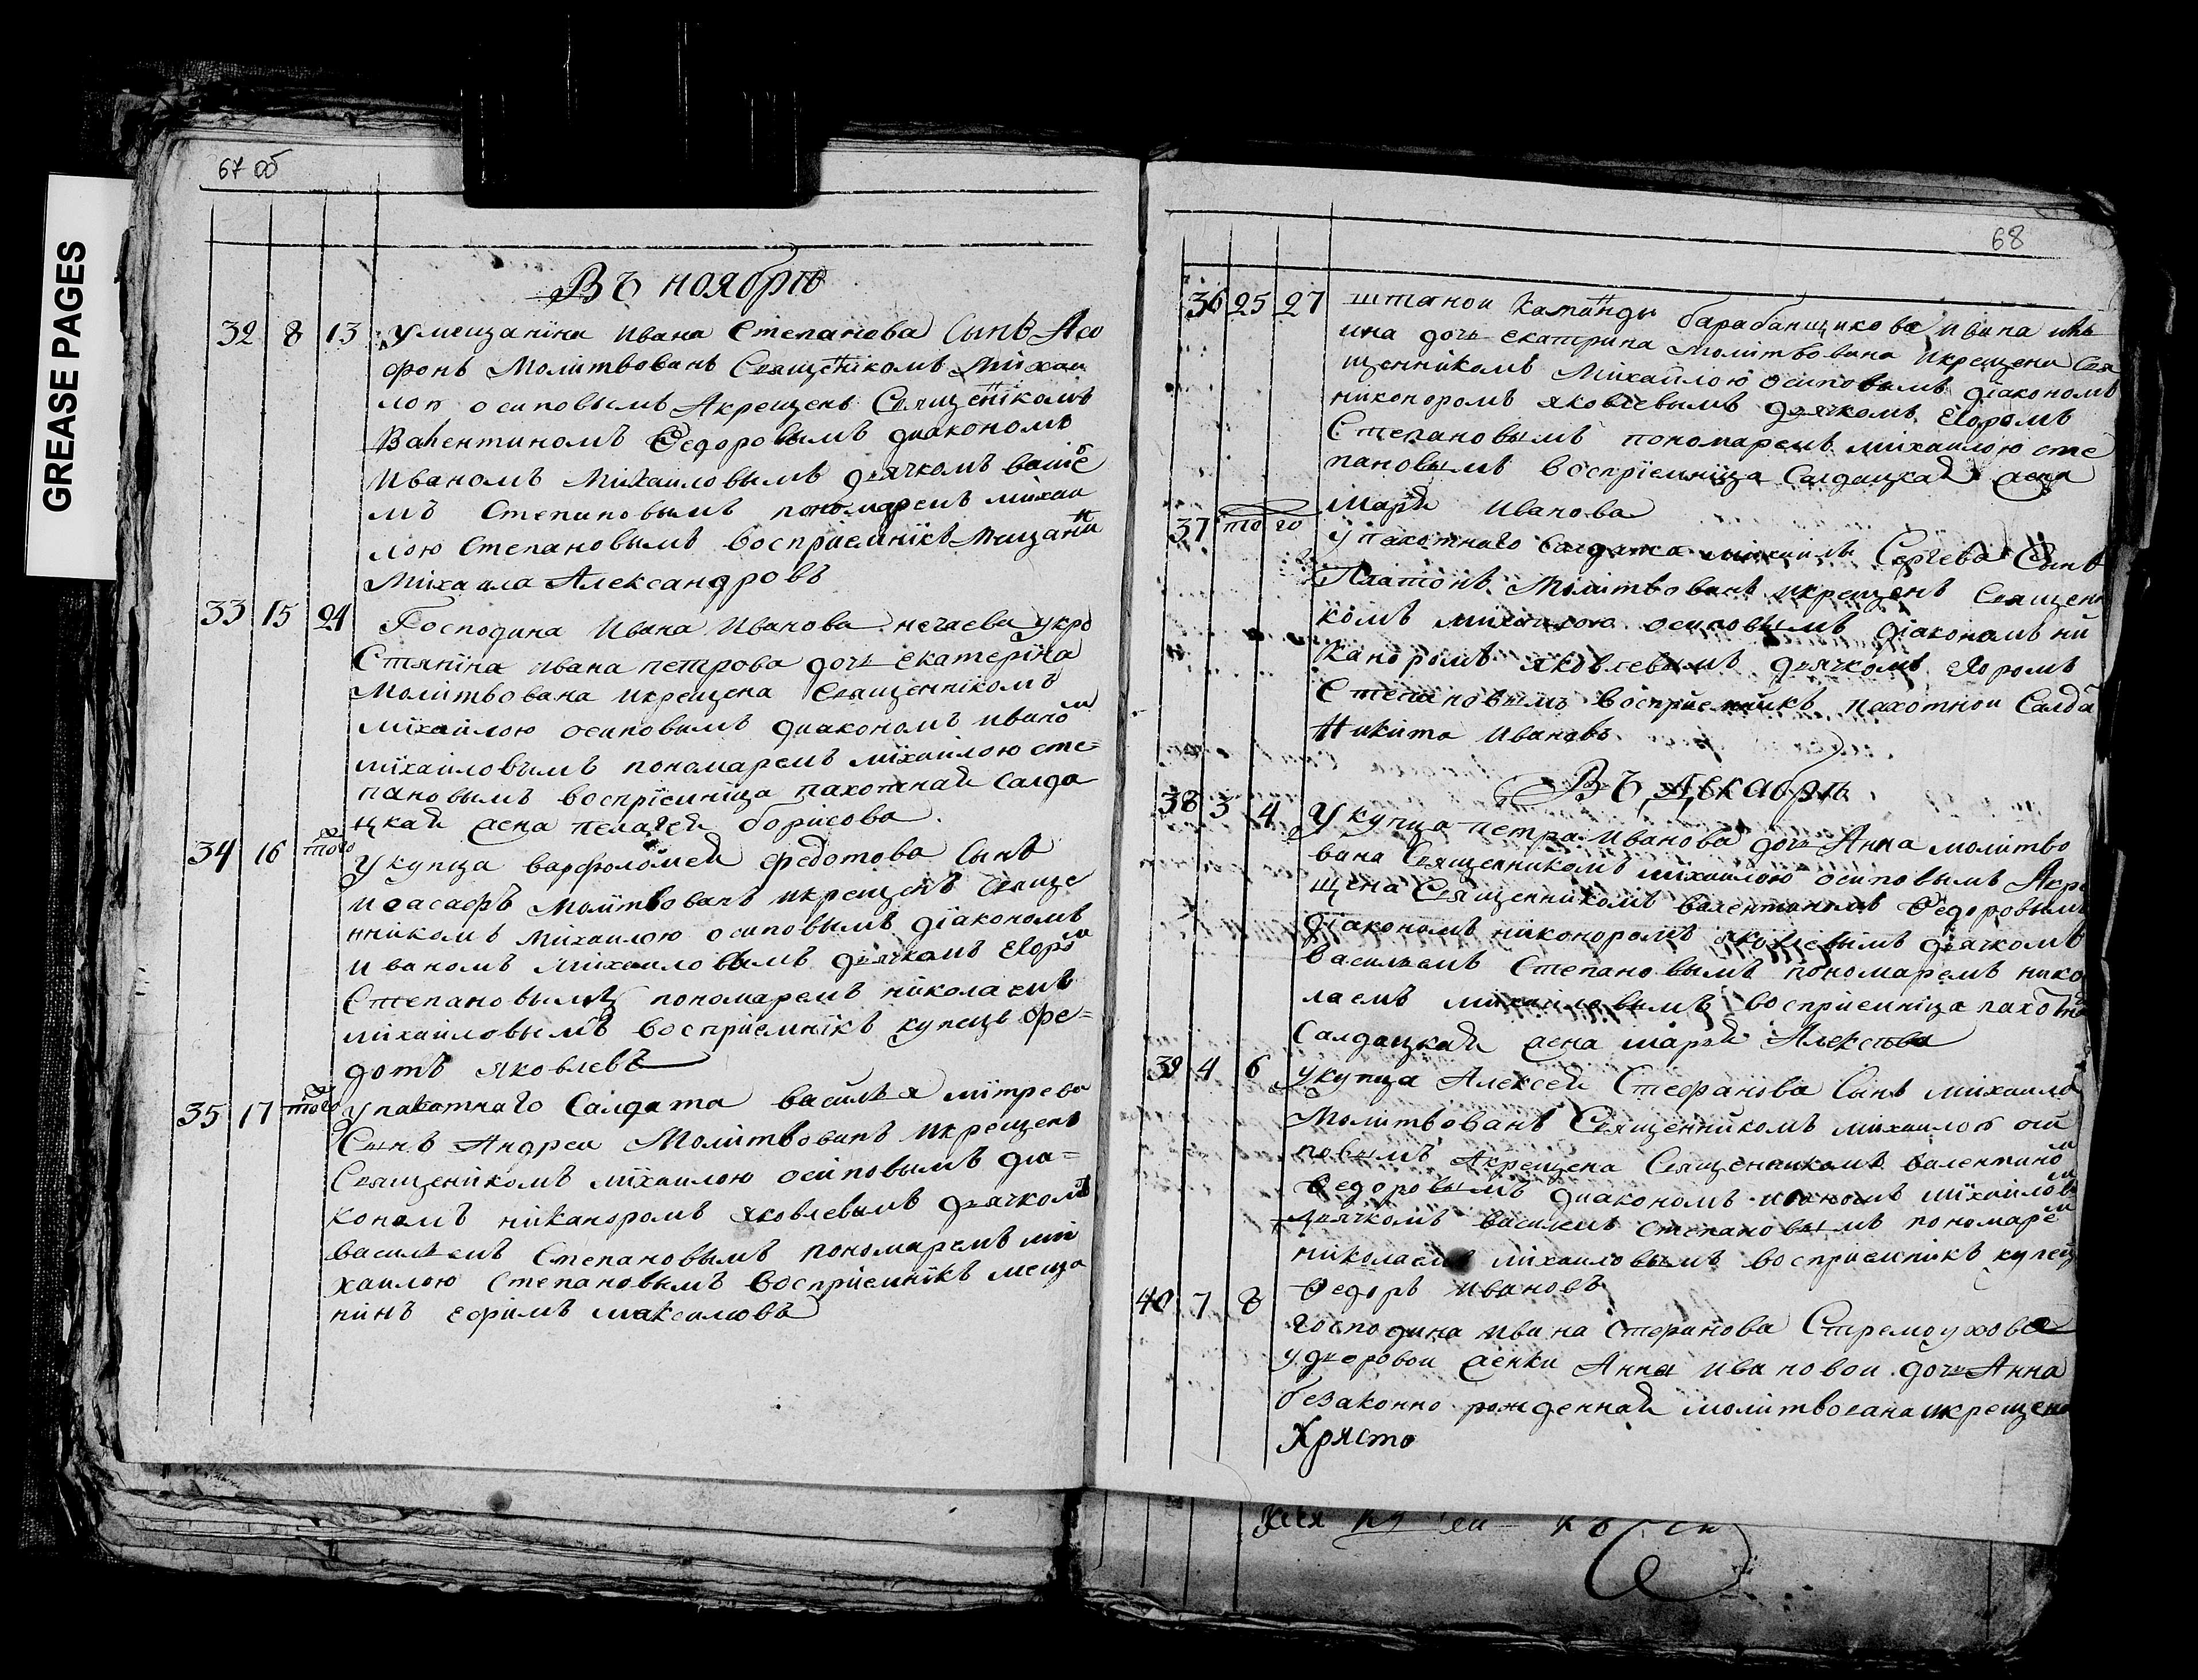 GREASE PAGES
67 об
Въ ноябрѣ
32 8 13 У мещанина Ивана Степанова Сынъ Аѳо
фонъ Молитвованъ Священикомъ Михаи
лоп осиповымъ Акрещенъ Священікомъ
Валентиномъ Ѳедоровымъ диакономъ
Иваномъ Михаиловымъ дьячкомъ
мъ Степановымъ пономаремъ михаи
лою Степановымъ Восприемнікъ Мещани
Михаила Александровъ
33 15 21 Господина Ивана Иванова нечаева укре
Стянина ивана петрова дочь екатеріна
Молитвована икрещена Священникомъ
міхаилою осиповымъ диакономъ ивано м
міхаиловымъ пономаремъ міхаилою сте=
пановымъ восприемніца пахотнай Салда
цкай жена пелагей борисова
34 16 того У купца варфоломей федотова Сынъ
иоасафъ молитвованъ икрещенъ Свяще
нникомъ михаилою осиповымъ диакономъ
иваномъ михаиловымъ дьячкомъ Егоро м
Степановымъ пономаремъ николаемъ
міхаиловымъ Восприемнікъ купецъ фе=
дотъ яковлевъ
35 17 того У пахотнаго Салдата василья митрева
Сынъ Андреи Молитвованъ икрещенъ
Священикомъ міхаилою осиповымъ диа=
кономъ никаноромъ яковлевымъ дьячкомъ
васильемъ Степановымъ пономаремъ ми
хаилою Степановымъ Восприемнікъ меща
нинъ ефимъ максимовъ
68
36 25 27 штатнои каманды барабанщикова ивана
ина дочь екатрина молитвована икрещена Свя
щенникомъ михаилою осиповымъ діакономъ
никоноромъ яковлевымъ дьячкомъ Егоромъ
Степановымъ пономаремъ михаилою сте
пановымъ Восприемніца Салдацкай жена
марй иванова
37 того У пахотнаго Салдата михаила Сергева Сынъ
Платонъ молитвованъ икрещенъ Священи
комъ михаилою осиповымъ діакономъ ни
каноромъ яковлевымъ дьячкомъ Егоромъ
Степановымъ Восприемнікъ пахотнои Салда
Никита ивановъ
Въ декабрѣ
38 3 4 У купца петра иванова дочь Анна молитво
вана Священникомъ міхаилою осиповымъ Акре
щена Священникомъ валентиномъ Ѳедоровымъ
діакономъ никоноромъ яковлевымъ дьячкомъ
васильемъ Степановымъ пономаремъ нико
лаемъ михаиловымъ восприемніца пахотна
Салдацкай жена марей Алексѣева
39 4 6 У купца Алексей Стефанова Сынъ михаила
Молитвованъ Священникомъ михаилоп оси
повымъ Акрещена Священникомъ валентино м
Ѳедоровымъ диакономъ иваномъ михаилов
дьячкомъ василемъ степановымъ пономаре м
николаемъ михаиловымъ восприемникъ купец
Ѳедоръ ивановъ
40 7 8 Господина ивана Стефанова Стремоухова
у дворовои женки Анны ивановои дочь Анна
безаконно рожденнай молитвована икрещена
Хрясто